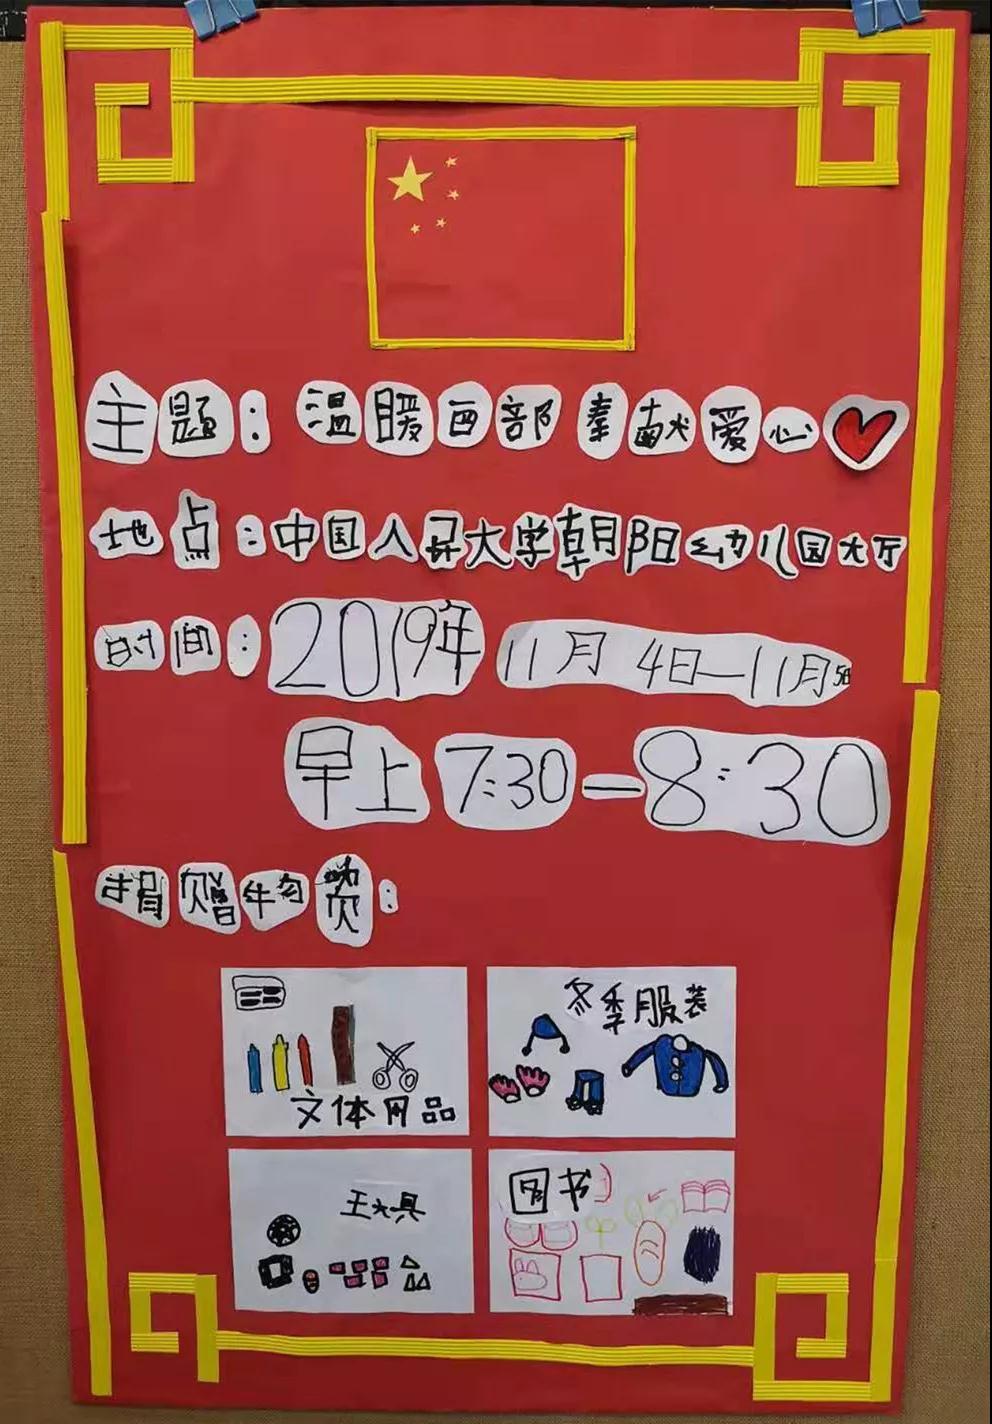 主题：温暖西部 奉献爱心
地点：中国人民大学朝阳幼儿园大厅
时间：2019年 11月 4日—11月5日
早上 7:30—8:30
捐赠物资：
文体用品
冬季服装
玩具
图书